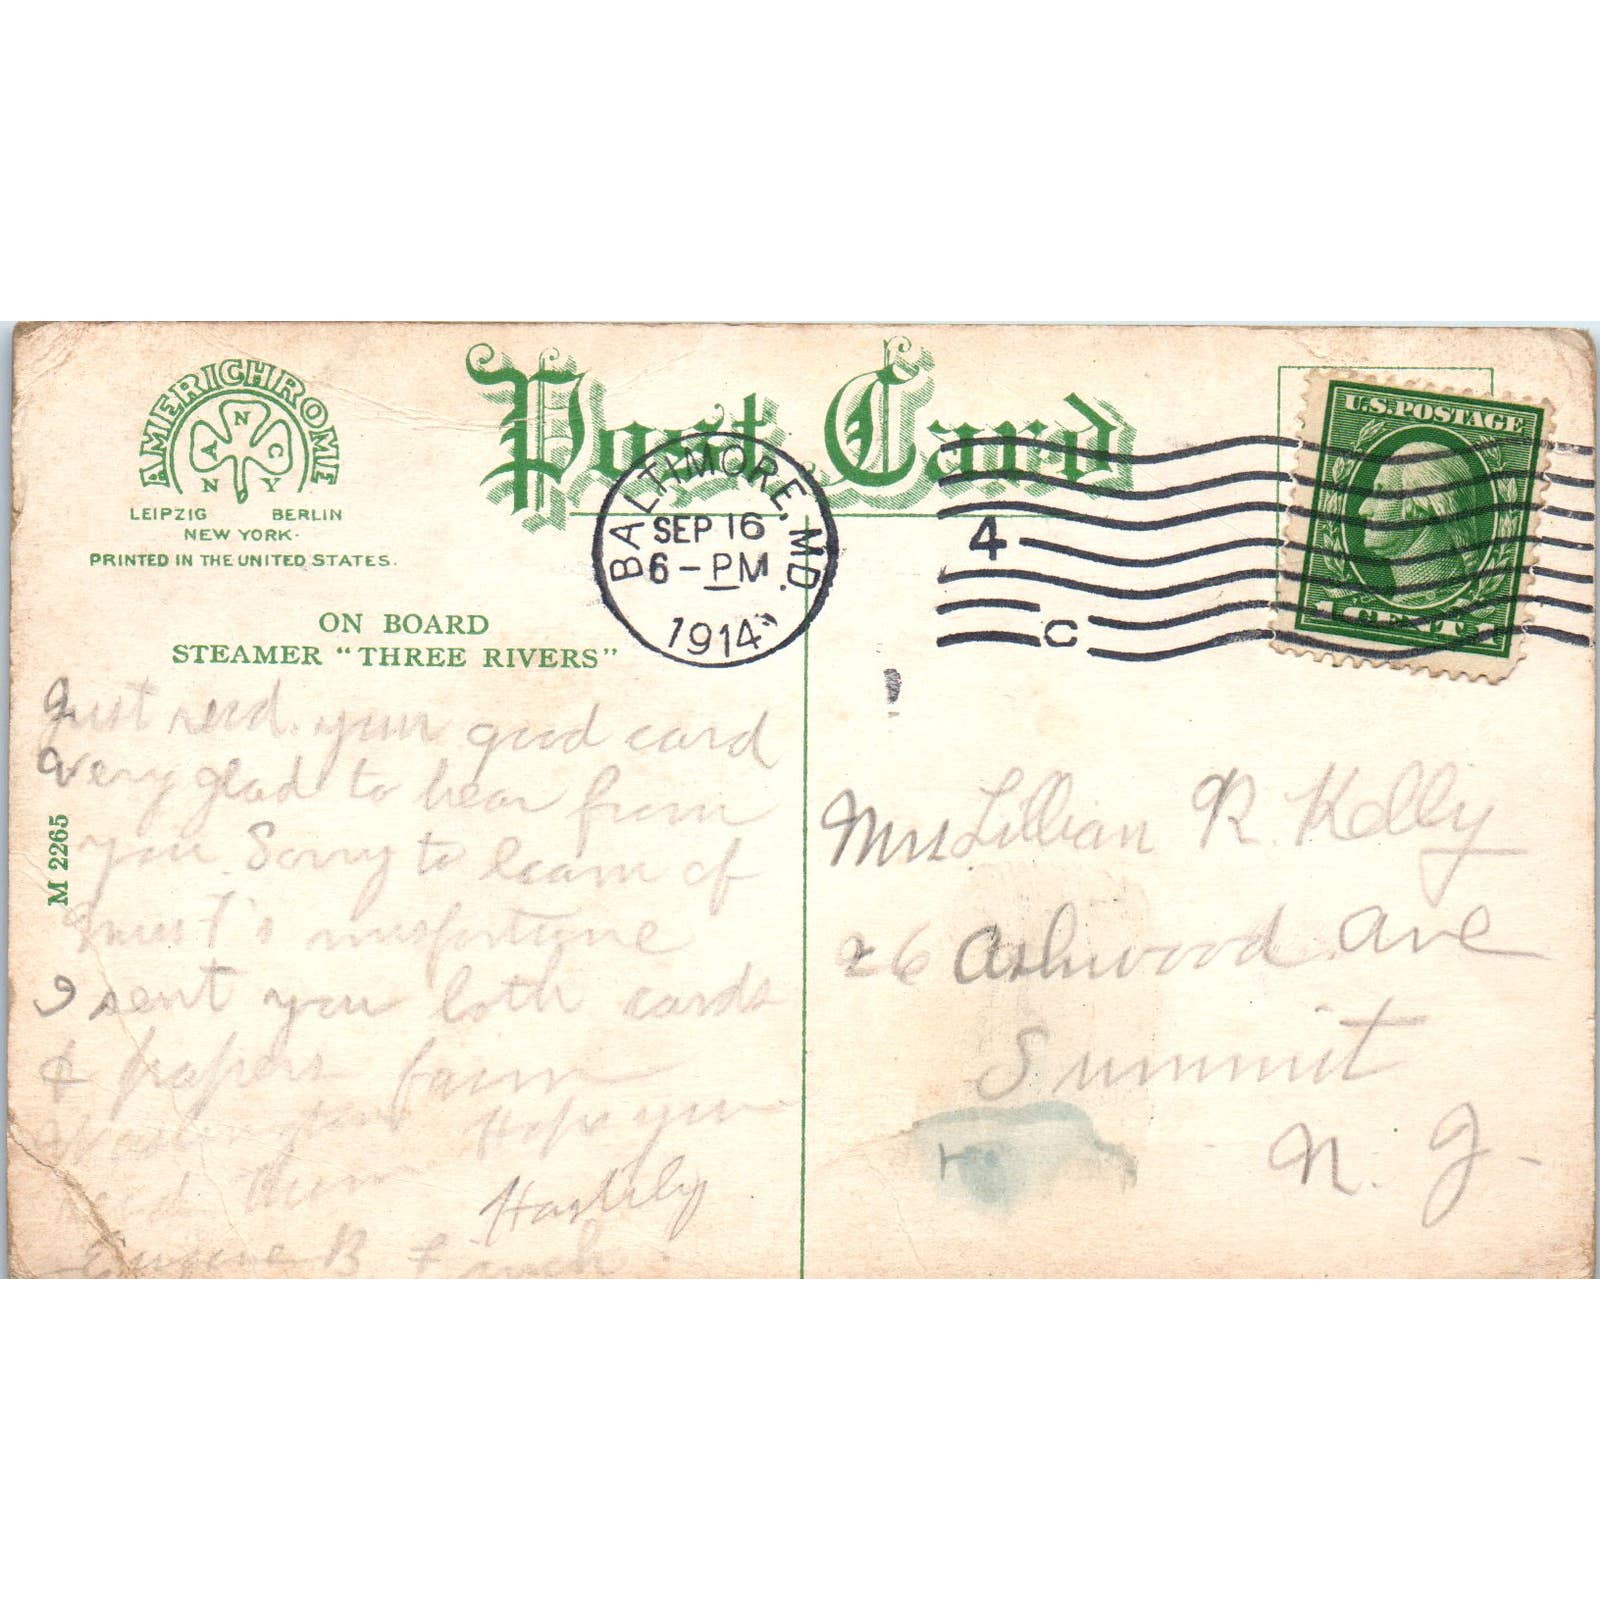 AMERICHROME
A N C
N Y
LEIPZIG BERLIN
NEW YORK.
PRINTED IN THE UNITED STATES.
Post Card
BALTIMORE, MD.
SEP 16
6-PM
1914
4
C
U.S. POSTAGE
1 CENT 1
ON BOARD
STEAMER "THREE RIVERS"
M 2265
Just recd. your good card
Very glad to hear from
you Sorry to learn of
misfortune
I sent you both cards
& papers from
Washington Hope you
recd them
Hastily
Eugene B
Mrs Lillian R. Kelly
26 Ashwood Ave
Summit
N. J.